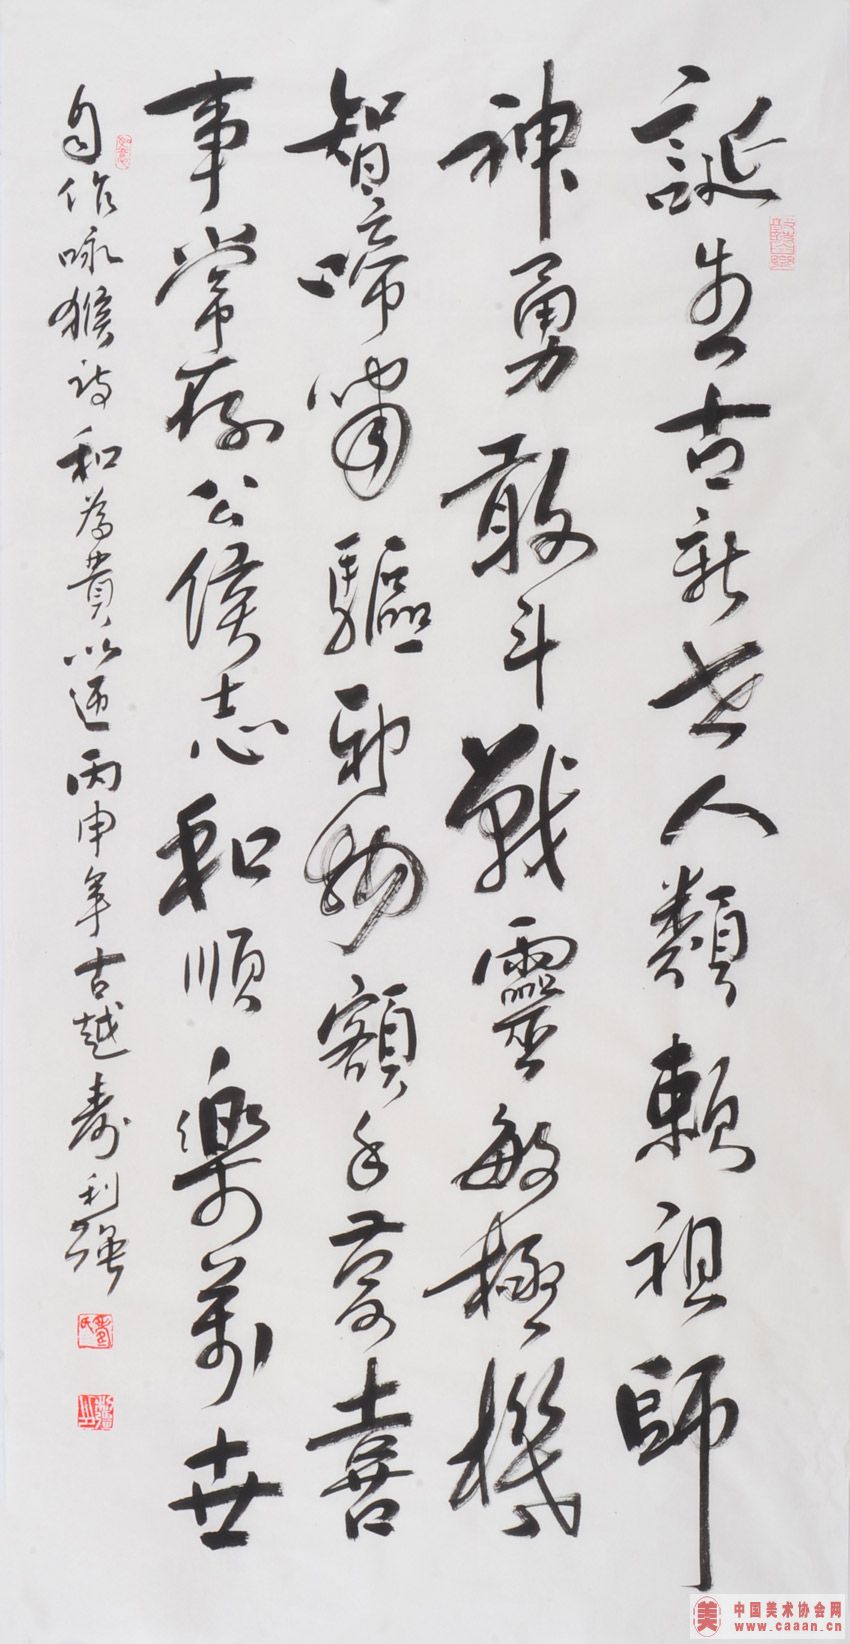 誕生古新世人類賴祖師
神勇敢斗戰靈敏極機
智啼嘯驅邪物額手喜
事常存公侯志和順樂萬世
自作咏猴詩和為貴以迎丙申年古越壽利強
中国美术协会网
www.caaan.cn